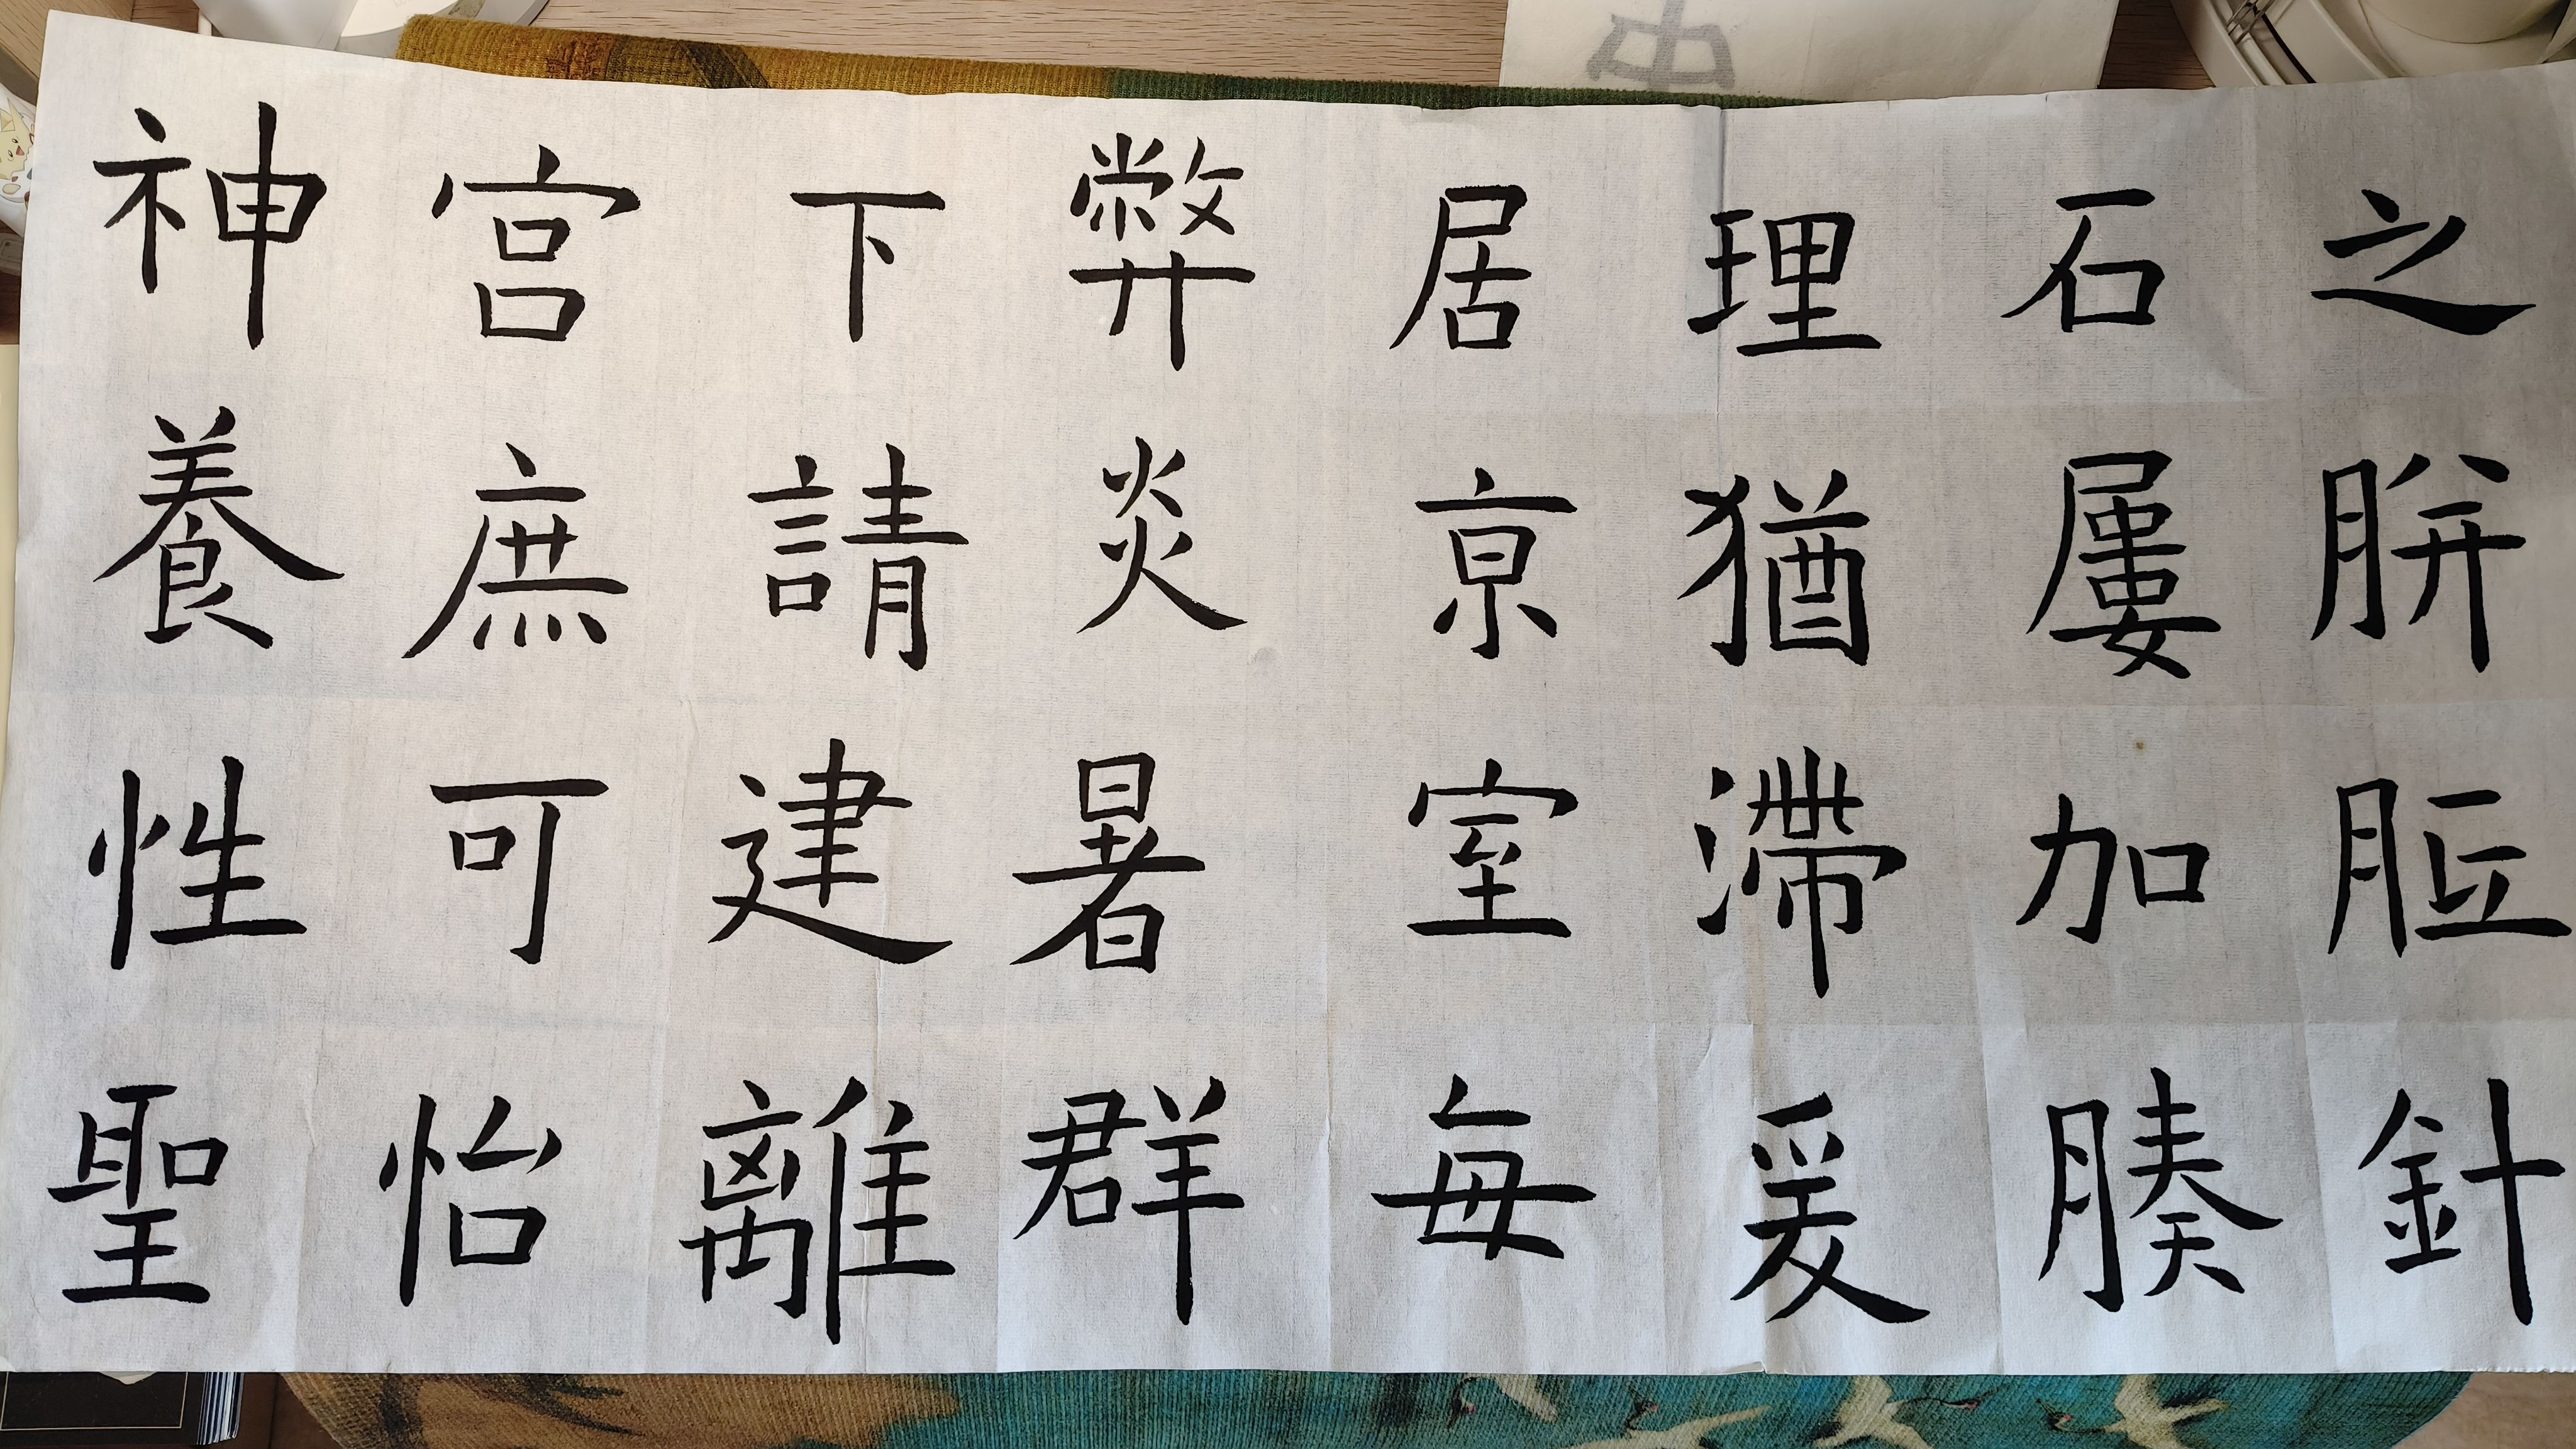 之胼胝針
石屢加腠
理猶滯爰
居亰室每
弊炎暑群
下請建離
宫庶可怡
神養性聖